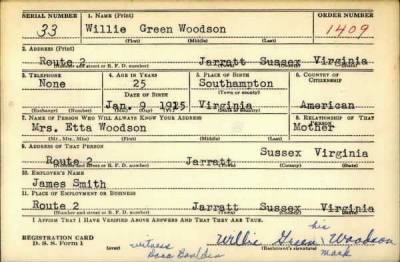 SERIAL NUMBER 1. NAME (Print) ORDER NUMBER
33 Willie Green Woodson 1409
(First) (Middle) (Last)
2. ADDRESS (Print)
Route 2 Jarratt Sussex Virginia
(Number and street or R. F. D. number) (Town) (County) (State)
3. TELEPHONE 4. AGE IN YEARS 5. PLACE OF BIRTH 6. COUNTRY OF CITIZENSHIP
None 25 Southampton
DATE OF BIRTH (Town or county)
Jan. 9 1915 Virginia American
(Exchange) (Number) (Mo.) (Day) (Yr.) (State or country)
7. NAME OF PERSON WHO WILL ALWAYS KNOW YOUR ADDRESS 8. RELATIONSHIP OF THAT PERSON
Mrs. Etta Woodson Mother
(Mr., Mrs., Miss) (First) (Middle) (Last)
9. ADDRESS OF THAT PERSON
Route 2 Jarratt Sussex Virginia
(Number and street or R. F. D. number) (Town) (County) (State)
10. EMPLOYER'S NAME
James Smith
11. PLACE OF EMPLOYMENT OR BUSINESS
Route 2 Jarratt Sussex Virginia
(Number and street or R. F. D. number) (Town) (County) (State)
I AFFIRM THAT I HAVE VERIFIED ABOVE ANSWERS AND THAT THEY ARE TRUE.
REGISTRATION CARD his
D. S. S. Form 1 witness Willie Green Woodson
(over) (Registrant's signature) mark